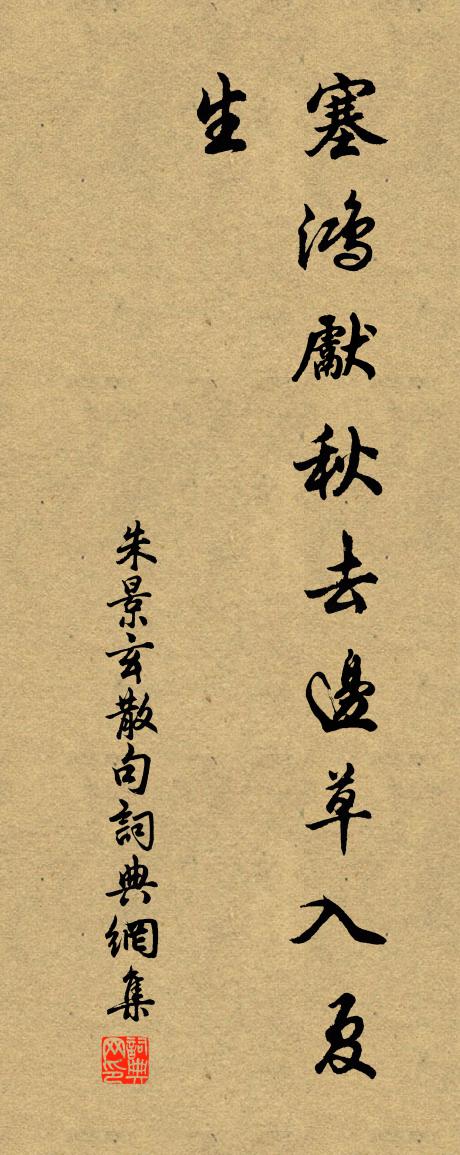 塞鴻獻秋去邊草入夏
生
朱景玄散句詞典網集
詞典
网印